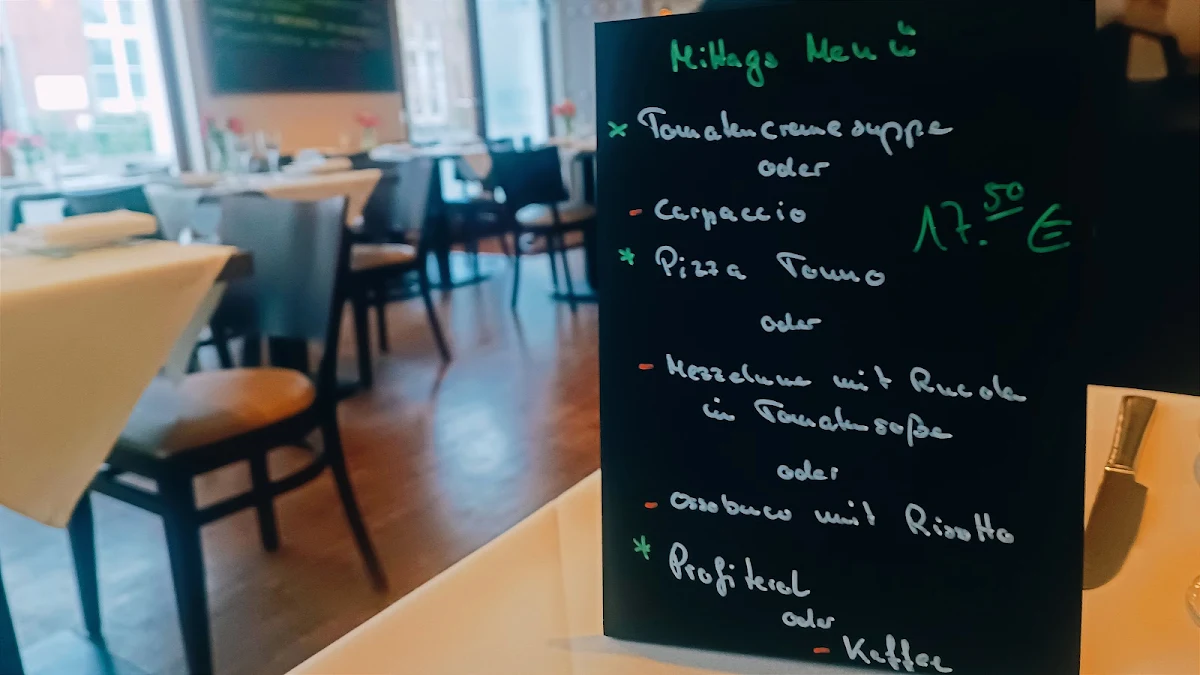 Mittags Menü
* Tomatencremesuppe
oder
- Carpaccio
17.50 €
* Pizza Tonno
oder
- Mezzelune mit Rucola
in Tomatensoße
oder
- Ossobuco mit Risotto
* Profiterol
oder
- Kaffee